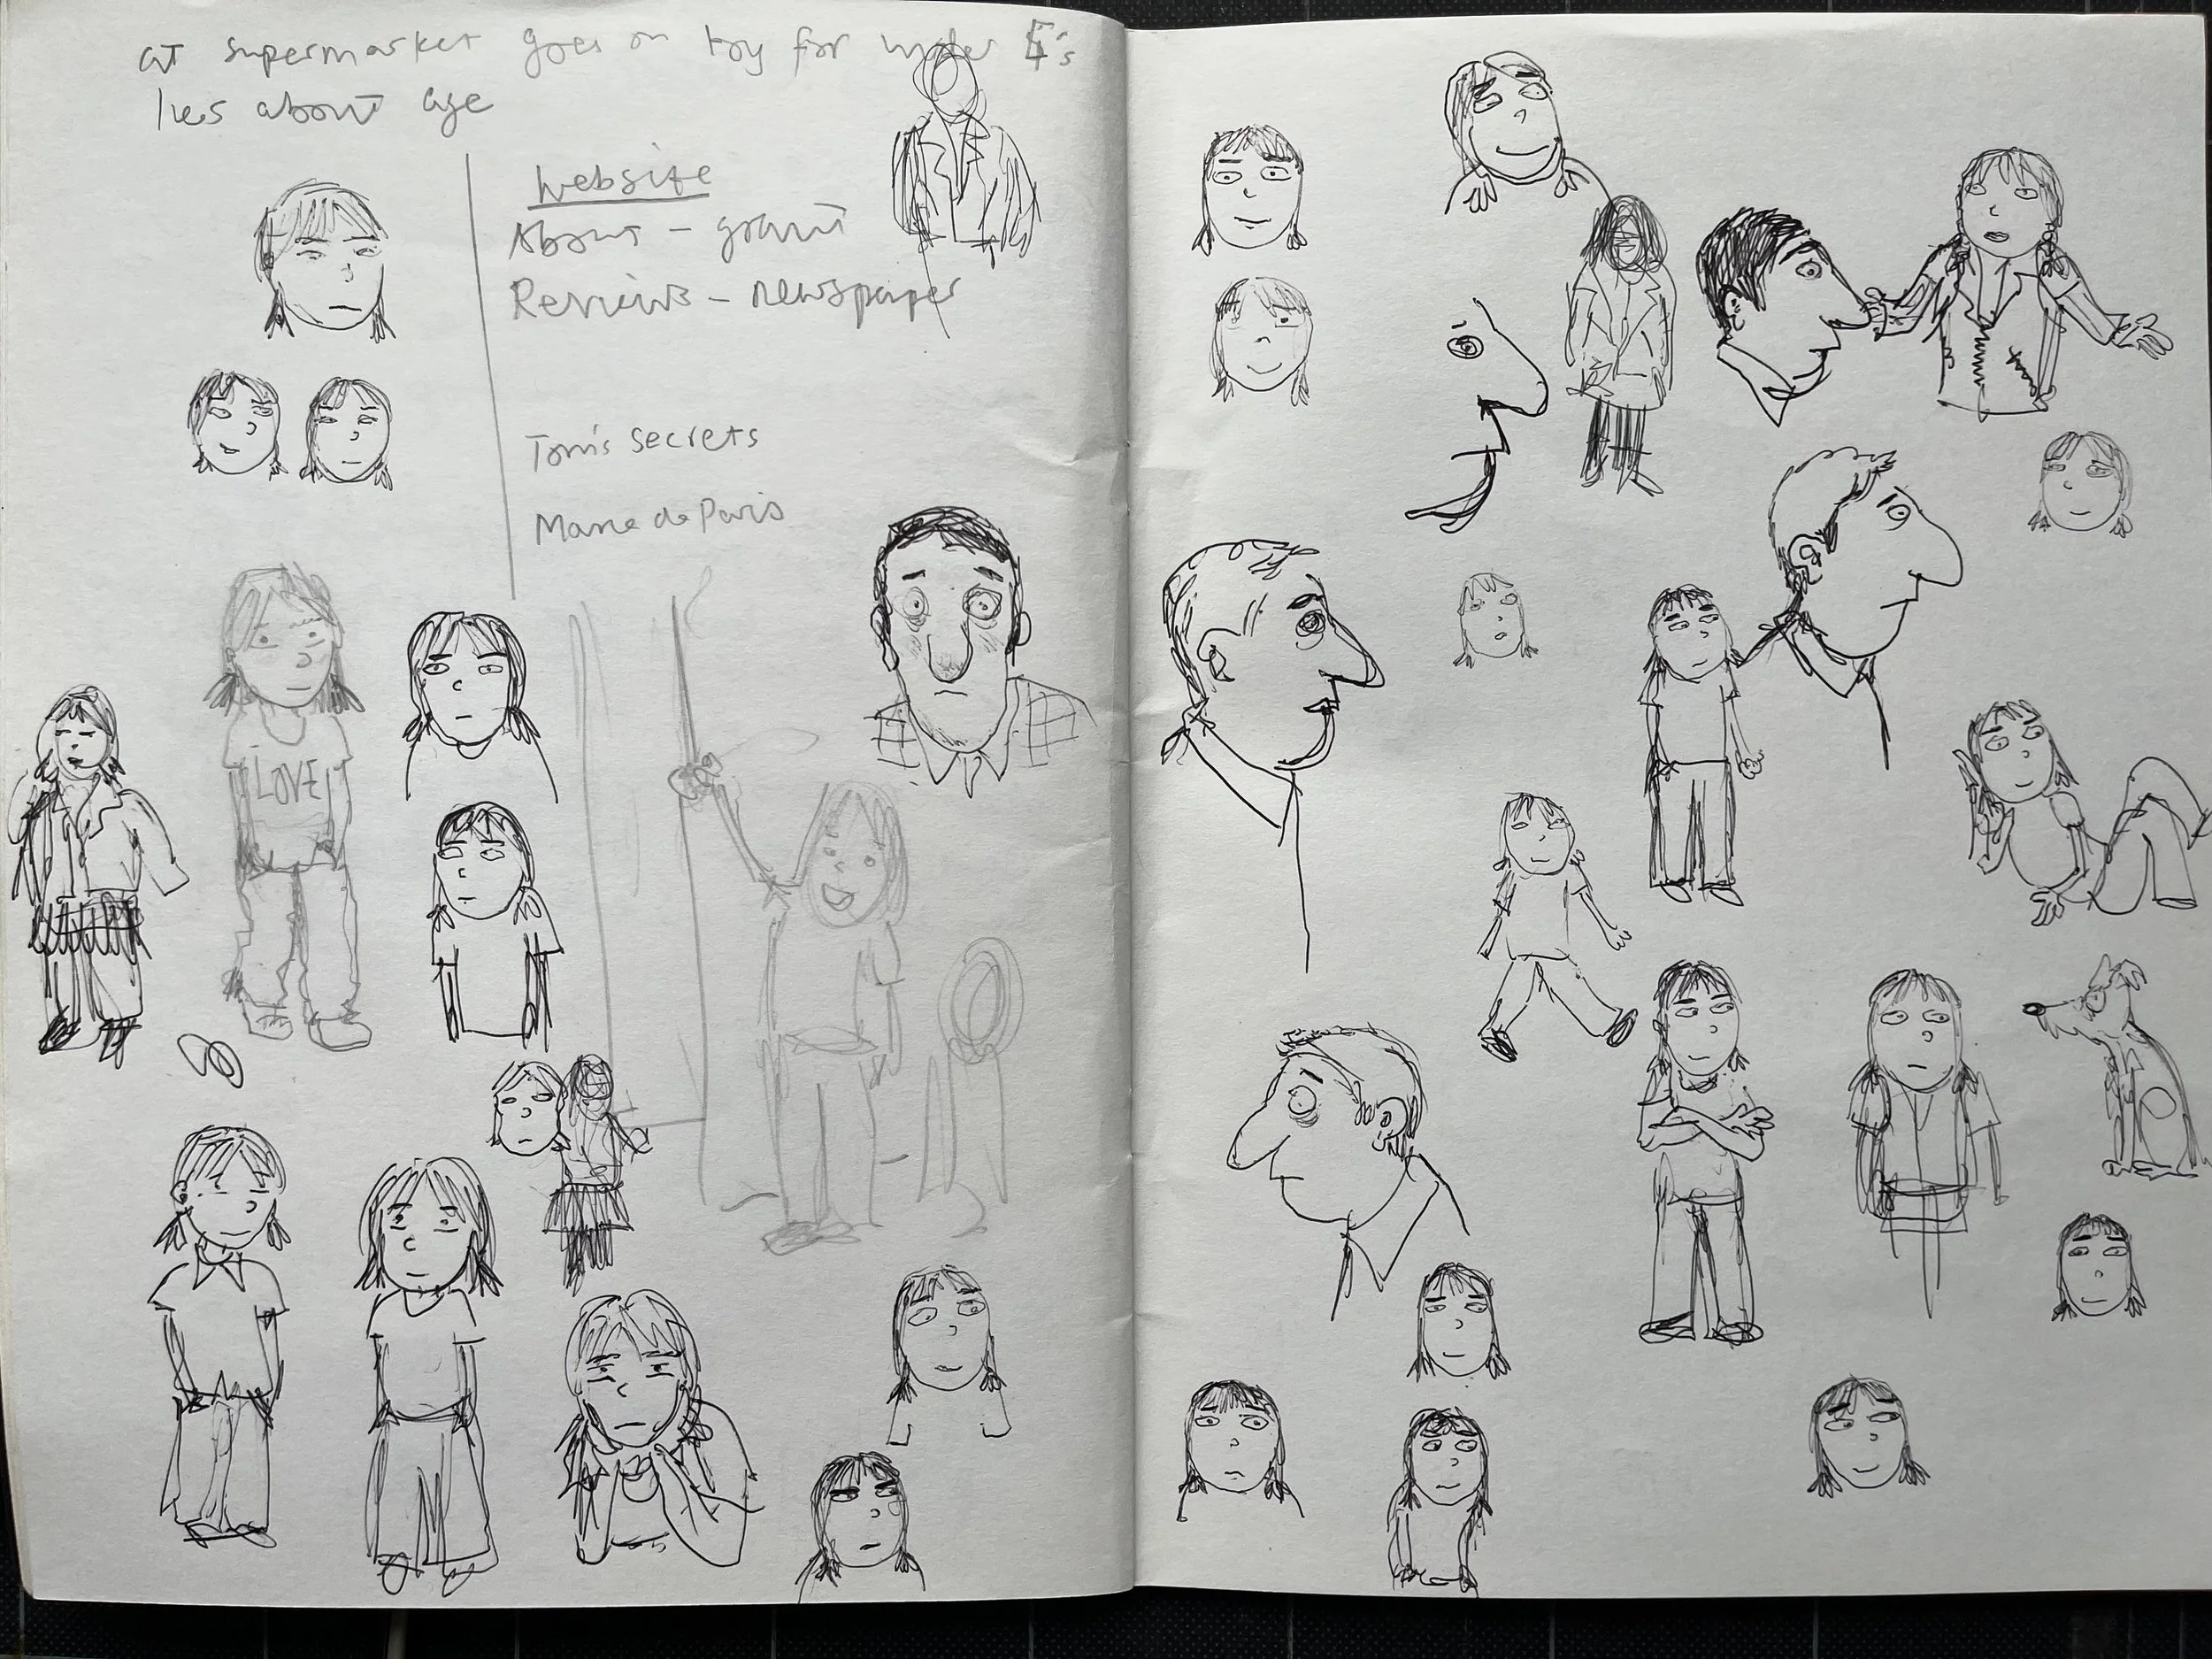 at supermarket goes on toy for under 5's
lies about age
Website
About - grant
Reviews - newspaper
Tom's secrets
Marie de Paris
LOVE